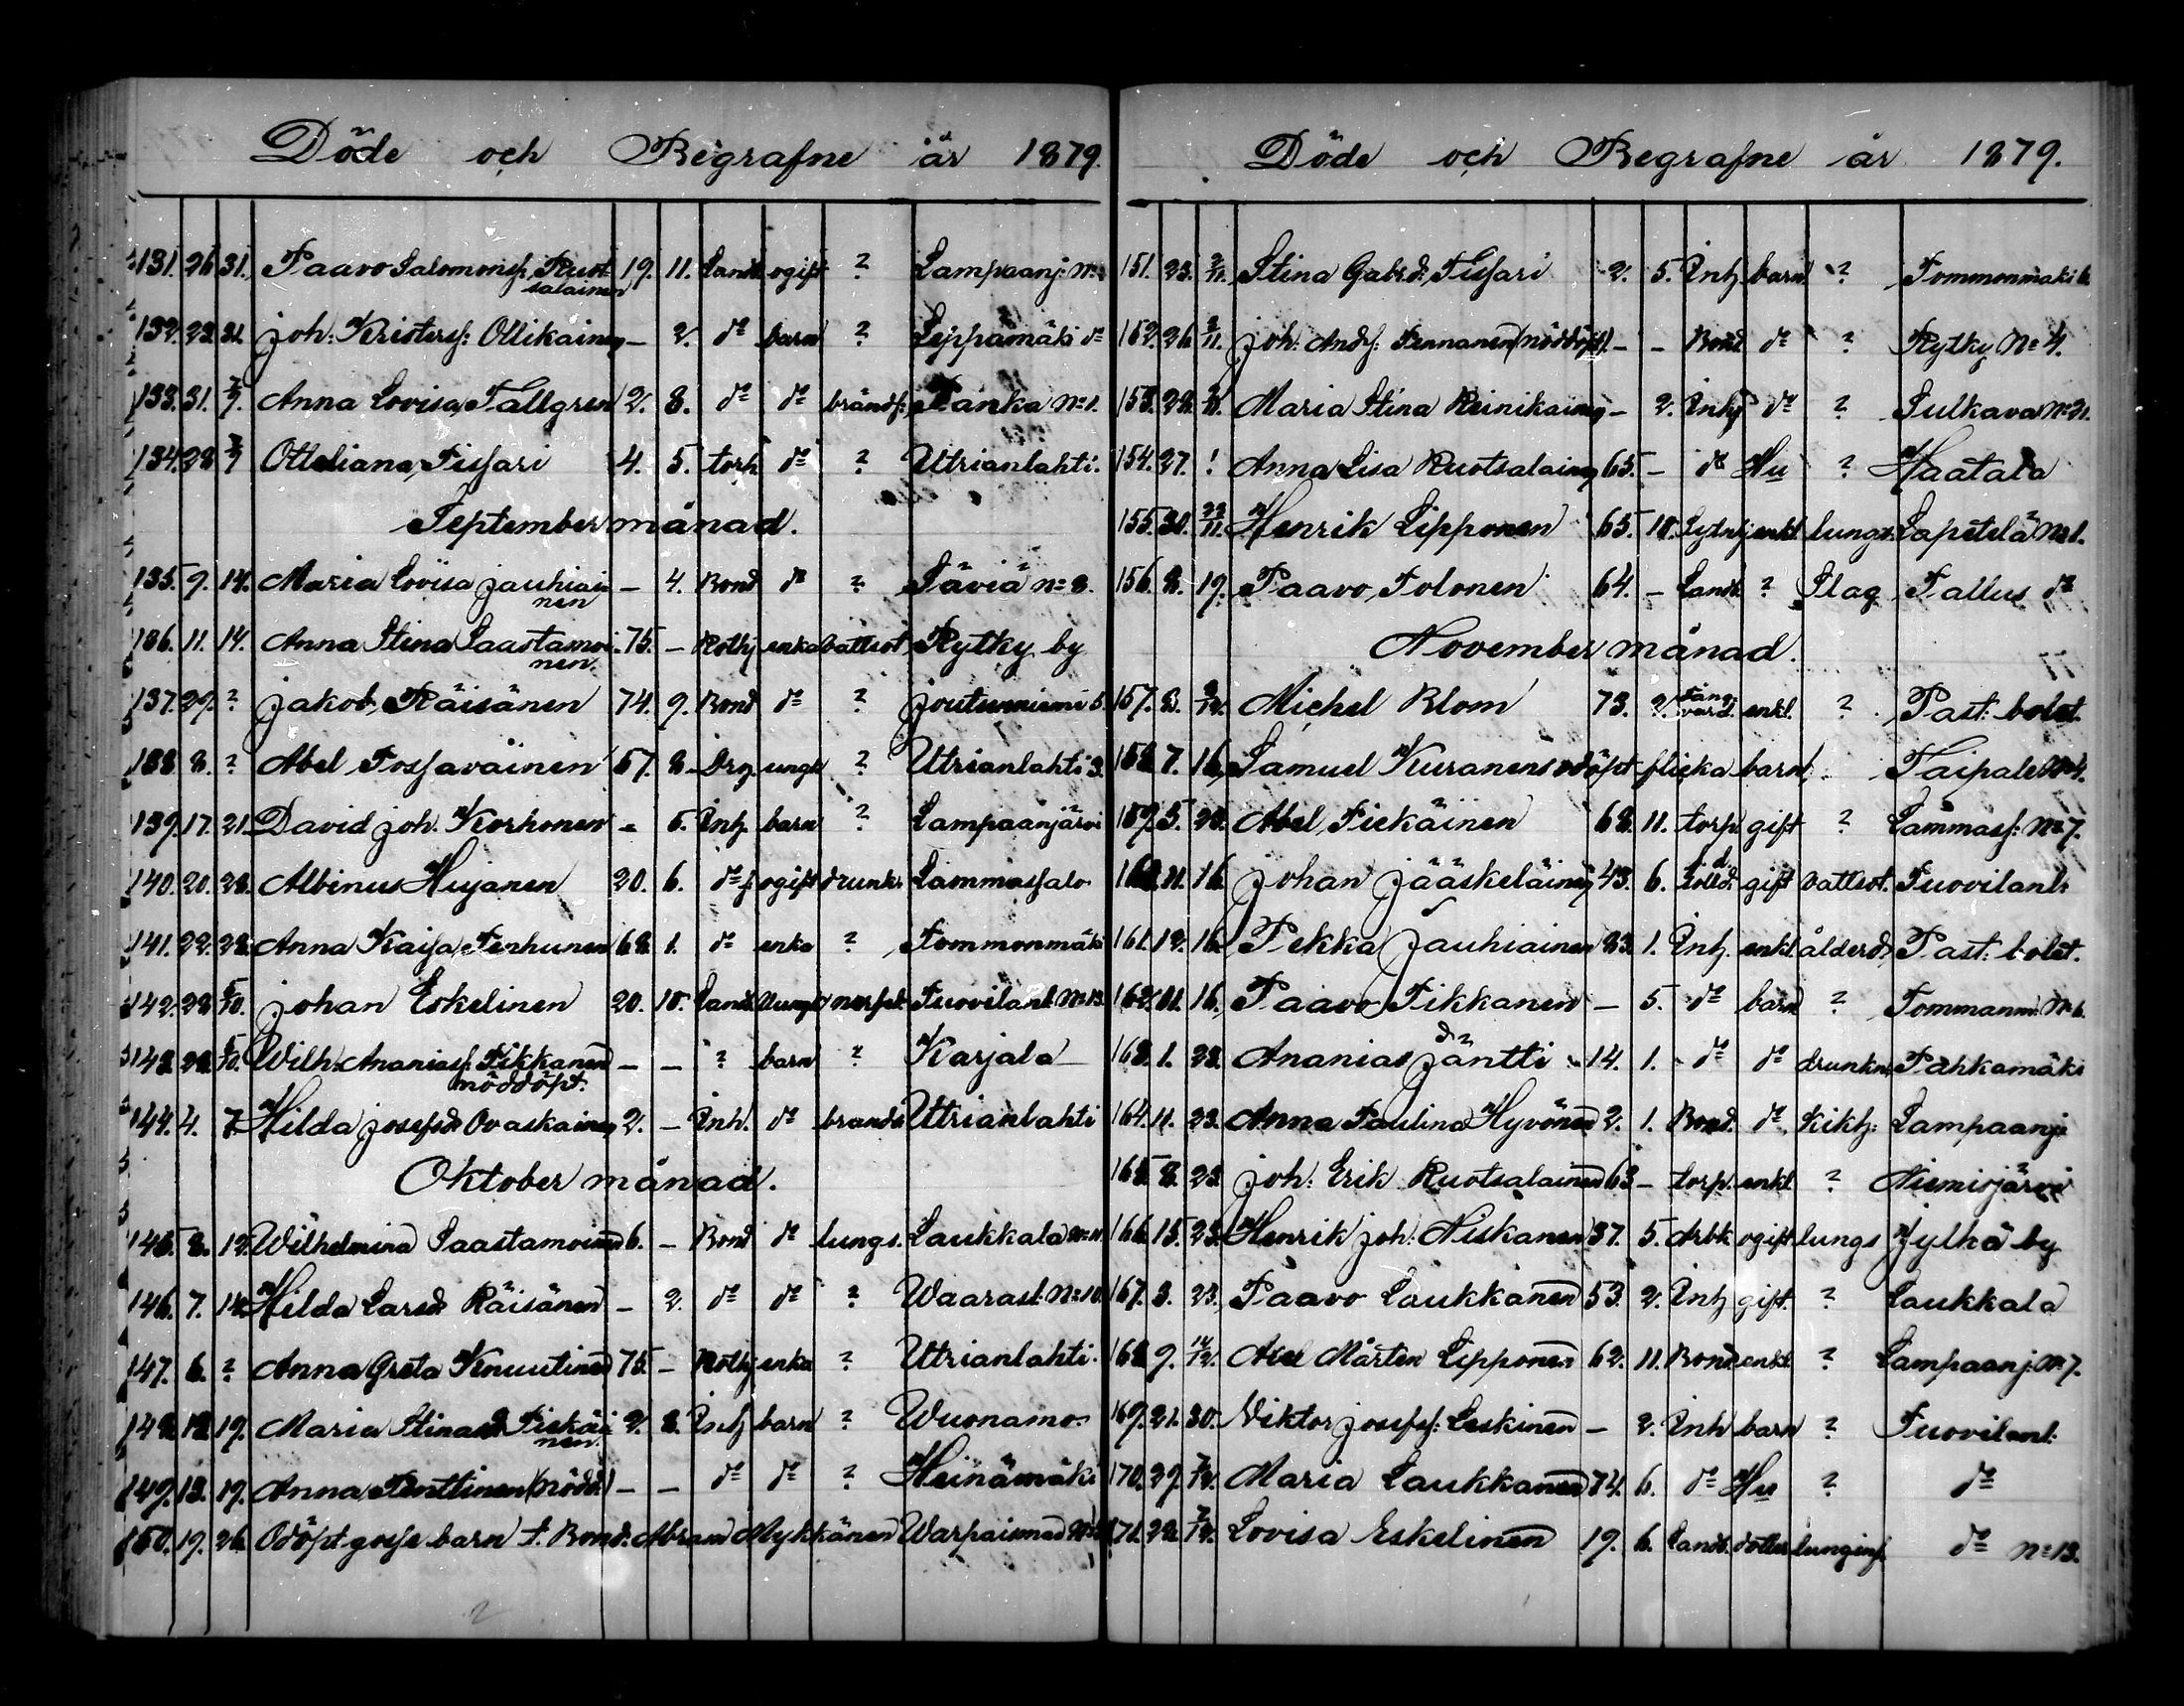 Döde och Begrafne år 1879.
131. 26. 31. Paavo Salomonsf. Ruot 19. 11. Landb. ogift ? Lampaanj. No
salainen
132. 23. 31. Joh: Kristersf: Ollikainen — 2. do barn ? Leppämäki do
133. 31. 7/9. Anna Lovisa Tallgren 2. 8. do do brändf: Panka No 1.
134. 28. 7/9 Otteliana Tissari 4. 5. torp do ? Utrianlahti.
September månad.
135. 9. 14. Maria Lovisa Jauhiai — 4. Bond do ? Säviä No 8.
nen
136. 11. 14. Anna Stina Saastamoi 75. — Rothj enka vattsot Rytky by
nen.
137. 29. ? Jakob Räisänen 74. 9. Bond do ? Joutenniemi 5.
138. 8. ? Abel Tossavainen 57. 8. Drg. ungk ? Utrianlahti 3.
139. 17. 21. David Joh. Korhonen — 5. Inh. barn ? Lampaanjärvi
140. 20. 28. Albinus Hujanen 20. 6. do f. ogift drunk. Lammassalo
141. 22. 28. Anna Kaisa Terhunen 68. 1. do enka ? Tommonmäki
142. 28. 5/10. Johan Eskelinen 20. 10. Landb. nerffeb. Tuovilanl. No 13.
143. 28. 5/10. Wilh: Ananiasf. Tikkanen — — ? barn ? Karjala
nöddöpt.
144. 4. 7. Hilda Josefsd. Ovaskainen 2. — Inh. do brands Utrianlahti
Oktober månad.
145. 8. 12. Wilhelmina Saastamoinen 6. — Bond do lungs. Laukkala No 11.
146. 7. 12. Hilda Larsd. Räisänen — 2. do do ? Waarasl. No 10.
147. 6. ? Anna Greta Knuutinen 75. — Rothj enka ? Utrianlahti.
148. 12. 19. Maria Stina Tiekäi 2. 8. Inh barn ? Wuonamo
nen.
149. 13. 19. Anna Penttinen (nödd.) — — do do ? Heinämäki
150. 19. 26. Odöpt gosse barn t. Bond. Abram Mykkänen Warpaismäki No
Döde och Begrafne år 1879.
151. 23. 2/11. Stina Gabrd: Tissari 2. 5. Inh barn ? Tommonmäki 6.
152. 26. 2/11. Joh: Andsf: Pennanen (nöddöpt) — — Bond. do ? Rytky No 4.
153. 28. 2/11. Maria Stina Reinikainen — 2. Inhj do ? Sulkava No 21.
154. 27. ! Anna Lisa Ruotsalainen 65. — do Hu ? Haatala
155. 30. 22/11. Henrik Lipponen 65. 10. Lytnj enkl. lungs. Lapetelä No 1.
156. 8. 19. Paavo Tolonen 64. — Landb. ? Slag Tallus do
November månad.
157. 3. 8/12. Michel Blom 73. 2. Fång vard. enkl. ? Past: bolet.
158. 7. 16. Samuel Kuranens odöpt flicka barn. Taipale No 4.
159. 5. 23. Abel Tiekäinen 68. 11. torp. gift ? Lammass: No 7.
160. 11. 16. Johan Jääskeläinen 43. 6. Solld. gift vattsot. Tuovilanl.
161. 12. 16. Pekka Jauhiainen 83. 1. Inh. enkl. ålderd. Past: bolet.
162. 11. 16. Paavo Tikkanen — 5. do barn ? Tommanm. No 6.
163. 1. 23. Ananias Jäntti 14. 1. do do drunkn. Pahkamäki
164. 11. 23. Anna Paulina Hyvönen 2. 1. Bond. do Kikh: Lampaanj.
165. 8. 23. Joh: Erik Ruotsalainen 63 — torp. enkl. ? Niemisjärvi
166. 15. 23. Henrik Joh: Niskanen 37. 5. Arbk. ogift lungs Jylhä by
167. 3. 23. Paavo Laukkanen 53. 2. Inh gift. ? Laukkala
168. 9. 14/12. Axel Mårten Lipponen 62. 11. Bond. enkl. ? Lampaanj. No 7.
169. 21. 30. Viktor Josefsf: Leskinen — 2. Inh barn ? Tuovilanl.
170. 29. 7/12. Maria Laukkanen 74. 6. do Hu ? do
171. 22. 7/12. Lovisa Eskelinen 19. 6. Landb. dotter lunginf. do No 13.